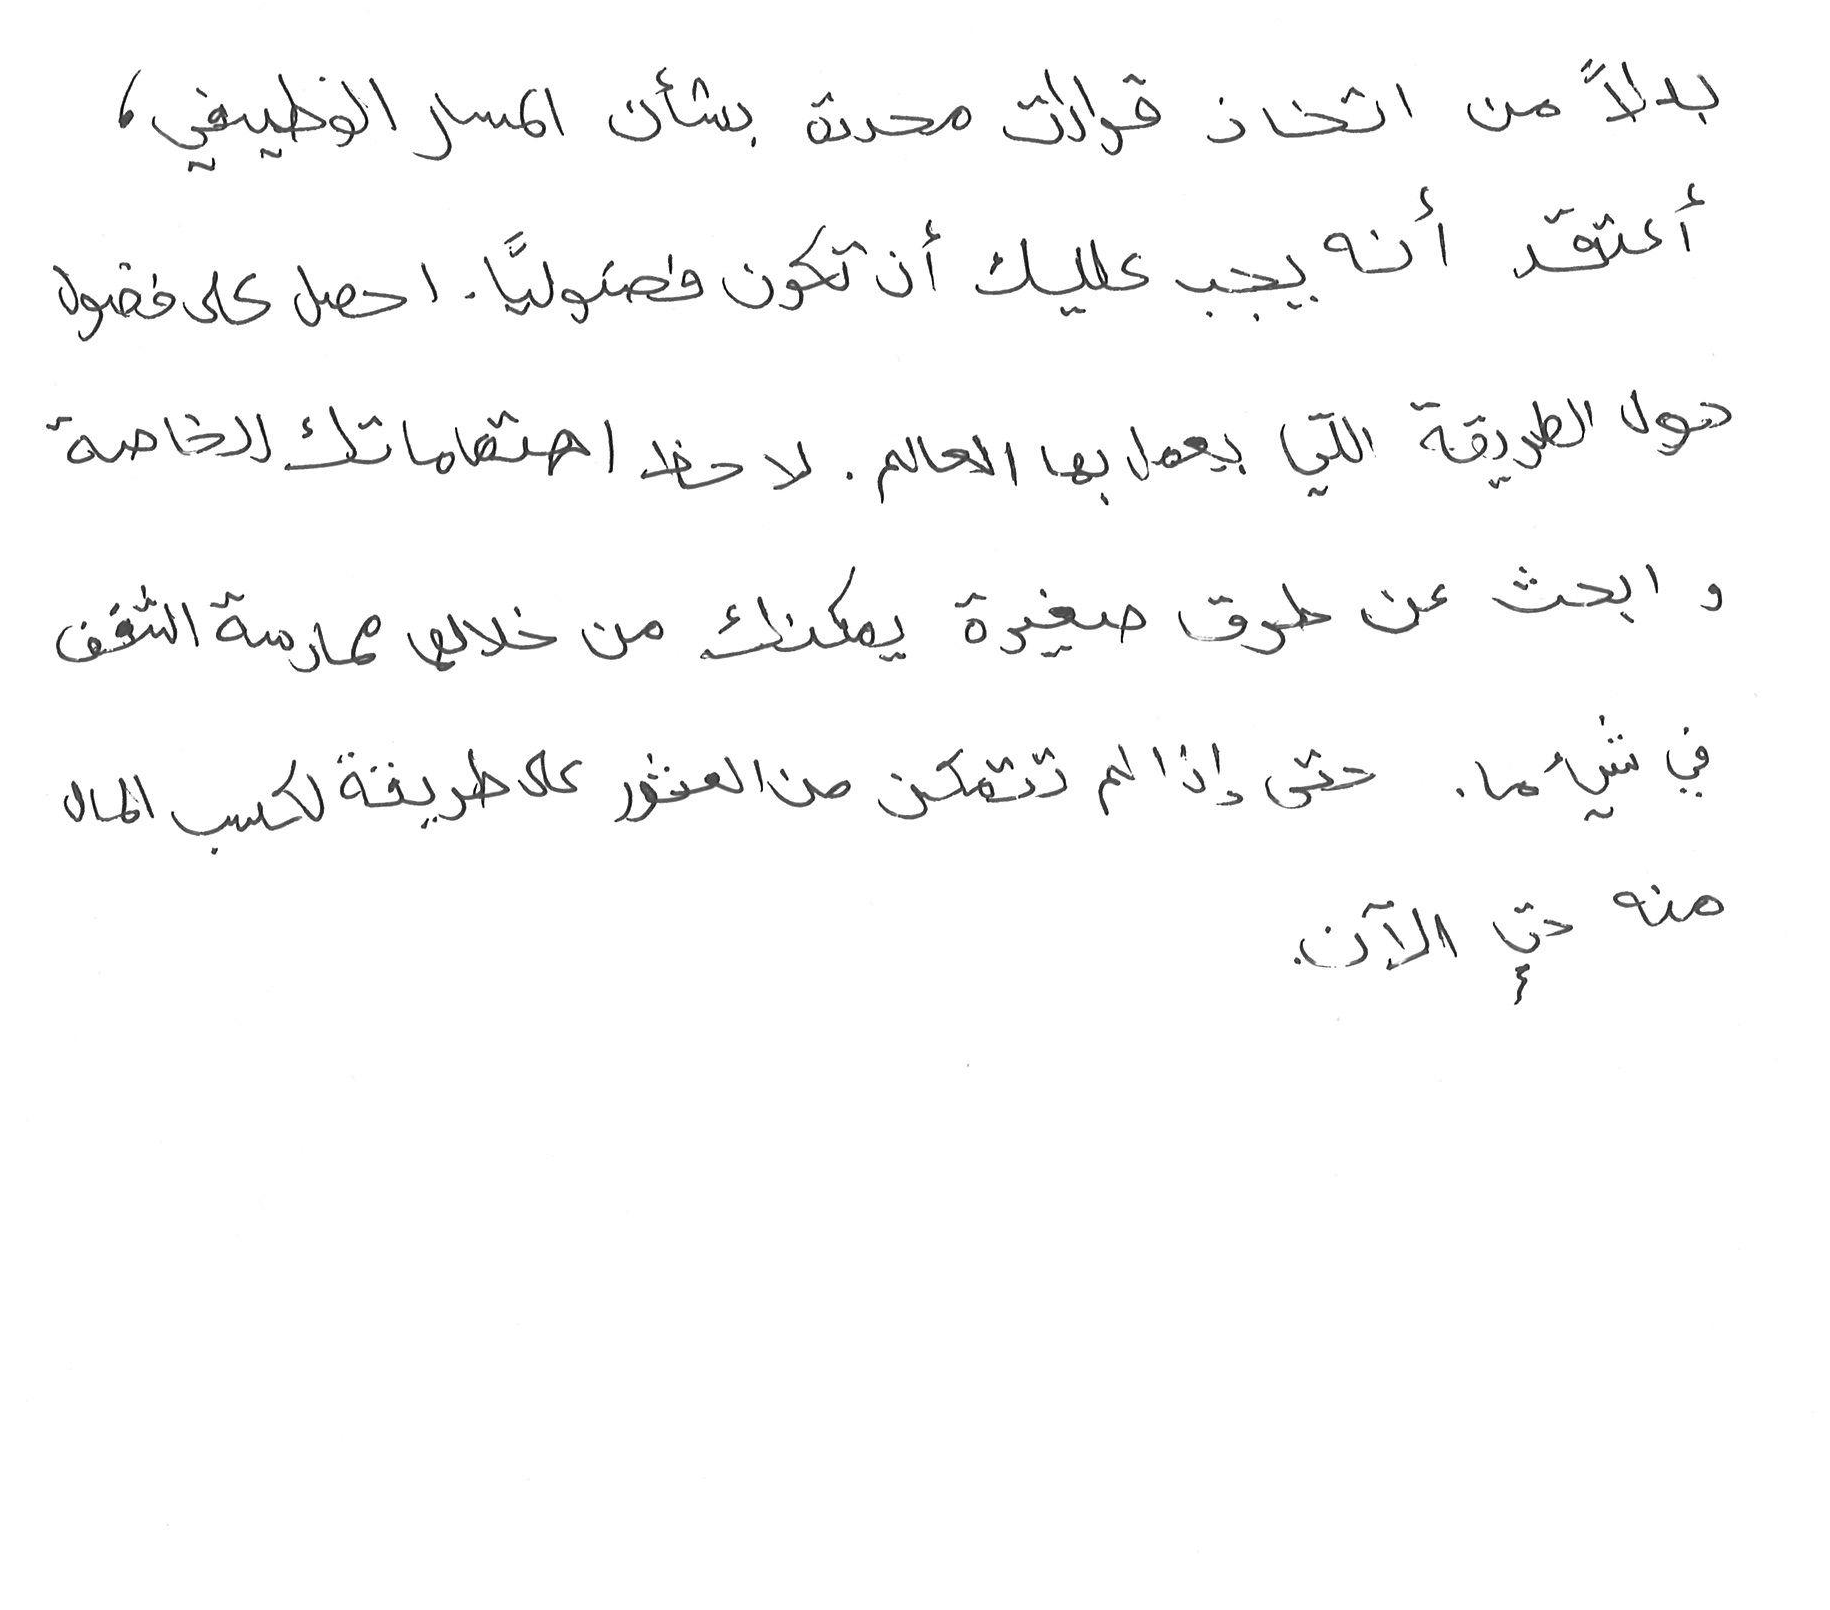 بدلاً من اتخاذ قرارات محددة بشأن المسار الوظيفي،
أعتقد أنه يجب عليك أن تكون فضوليًا. احصل على فضول
حول الطريقة التي يعمل بها العالم. لاحظ اهتماماتك الخاصة
و ابحث عن طرق صغيرة يمكنك من خلالها ممارسة الشغف
في شيء ما. حتى إذا لم تتمكن من العثور على طريقة لكسب المال
منه حتى الآن.